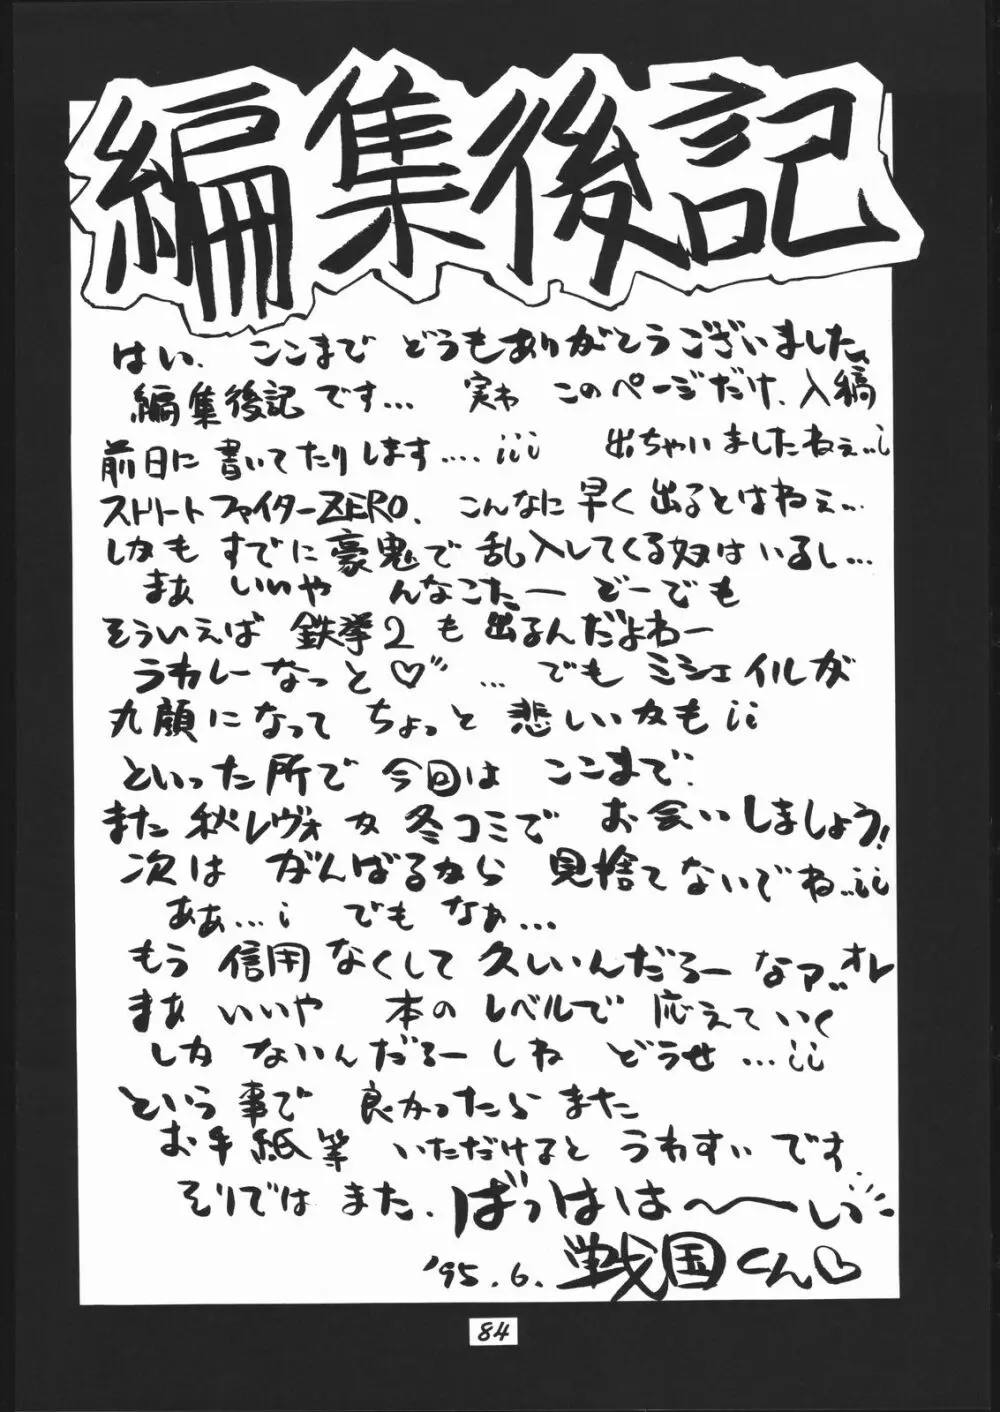 編集後記
はい、ここまで どうもありがとうございました、
編集後記です… 実わ このページだけ、入稿
前日に書いてたりします….iii 出ちゃいましたねぇ..i
ストリートファイターZERO、こんなに早く出るとはねぇ…
しかも すでに豪鬼で乱入してくる奴はいるし…
まぁ いいや んなこたー どーでも
そういえば 鉄拳2も出るんだよねー
うれしーなっと♡" … でも ミシェイルが
丸顔になって ちょっと 悲しいかもii
といった所で 今回は ここまで.
また 秋レヴォか冬コミで お会いしましょう!
次は がんばるから 見捨てないでね..ii
ああ…i でも なぁ…
もう 信用なくして久しいんだろーなァ..オレ
まぁ いいや 本のレベルで 応えていく
しか ないんだろーしね どうせ …ii
という事で 良かったらまた
お手紙等 いただけると うれすぃです.
そりでは また. ばっはは〜〜いっ
'95.6. 戦国くん♡
84